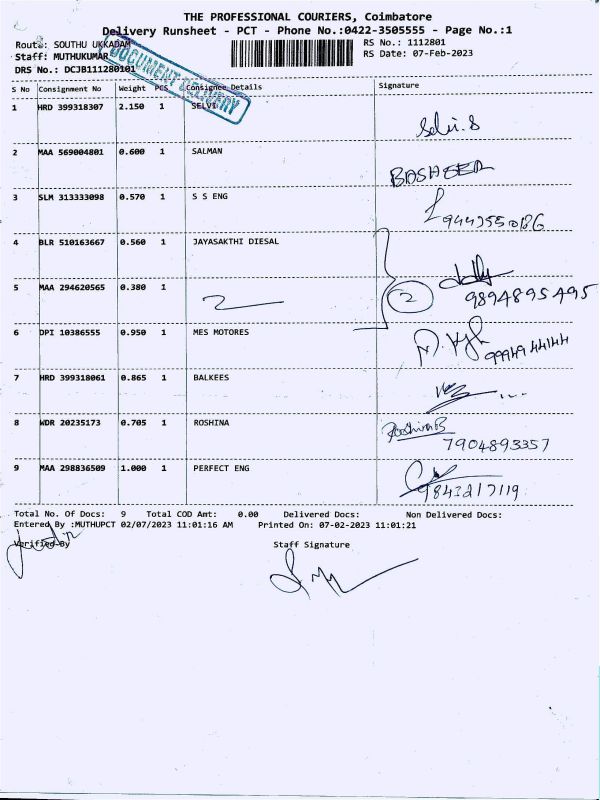 THE PROFESSIONAL COURIERS, Coimbatore
Delivery Runsheet - PCT - Phone No.:0422-3505555 - Page No.:1
Route: SOUTHU UKKADAM RS No.: 1112801
Staff: MUTHUKUMAR RS Date: 07-Feb-2023
DRS No.: DCJB111280101
DOCUMENT DELIVERY
S No Consignment No Weight PCS Consignee Details Signature
1 HRD 399318307 2.150 1 SELVI
Selvi.S
2 MAA 569004801 0.600 1 SALMAN
BASHEER
3 SLM 313333098 0.570 1 S S ENG
4 BLR 510163667 0.560 1 JAYASAKTHI DIESAL
5 MAA 294620565 0.380 1
2 9894895495
6 DPI 10386555 0.950 1 MES MOTORES
9994944144
7 HRD 399318061 0.865 1 BALKEES
8 WDR 20235173 0.705 1 ROSHINA
Roshina B
7904893357
9 MAA 298836509 1.000 1 PERFECT ENG
9843217119
Total No. Of Docs: 9 Total COD Amt: 0.00 Delivered Docs: Non Delivered Docs:
Entered By :MUTHUPCT 02/07/2023 11:01:16 AM Printed On: 07-02-2023 11:01:21
Verified By Staff Signature